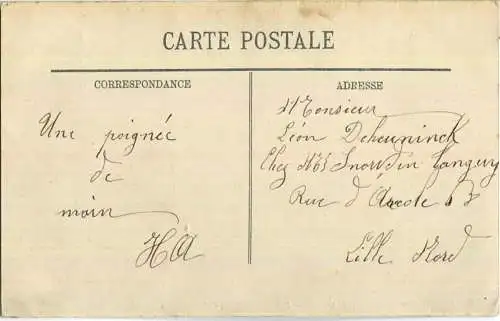 CARTE POSTALE
CORRESPONDANCE
Une poignée
de
main
HA
ADRESSE
Monsieur
Léon Deheuninck
Chez
Rue d'Arcole
Lille Nord